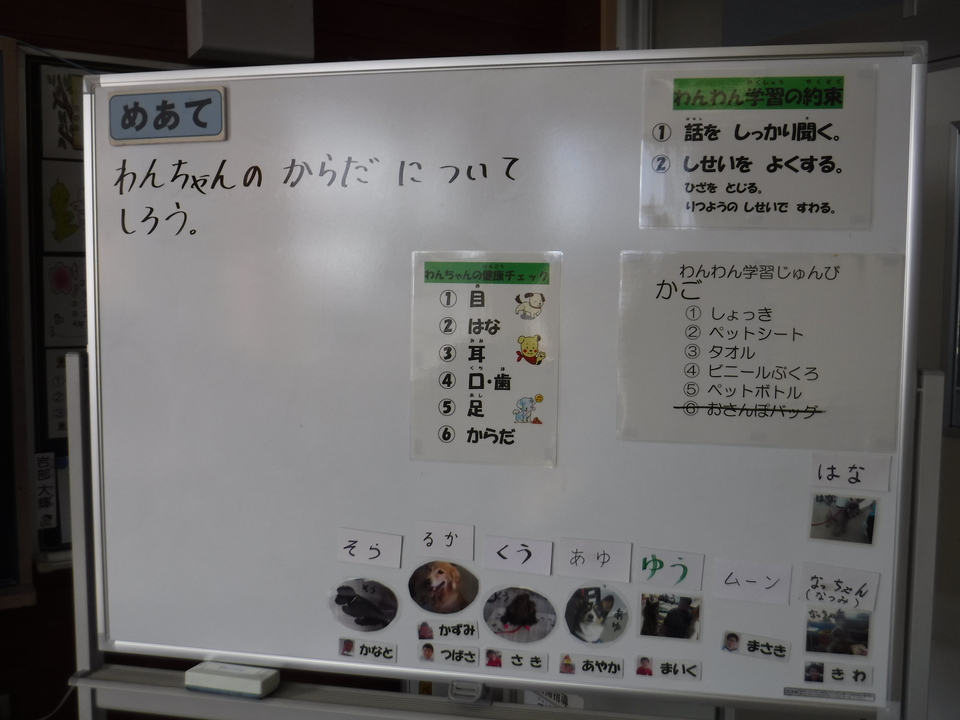 めあて
わんちゃんの からだ に ついて
しろう。
わんわん学習の約束
① 話を しっかり聞く。
② しせいを よくする。
ひざを とじる。
りつようの しせいで すわる。
わんちゃんの健康チェック
① 目
② はな
③ 耳
④ 口・歯
⑤ 足
⑥ からだ
わんわん学習じゅんび
かご
① しょっき
② ペットシート
③ タオル
④ ビニールぶくろ
⑤ ペットボトル
⑥ おさんぽバッグ
はな
そら
るか
くう
あゆ
ゆう
ムーン
なっちゃん
(なつみ)
かなと
かずみ
つばさ
さき
あやか
まいく
まさき
きわ